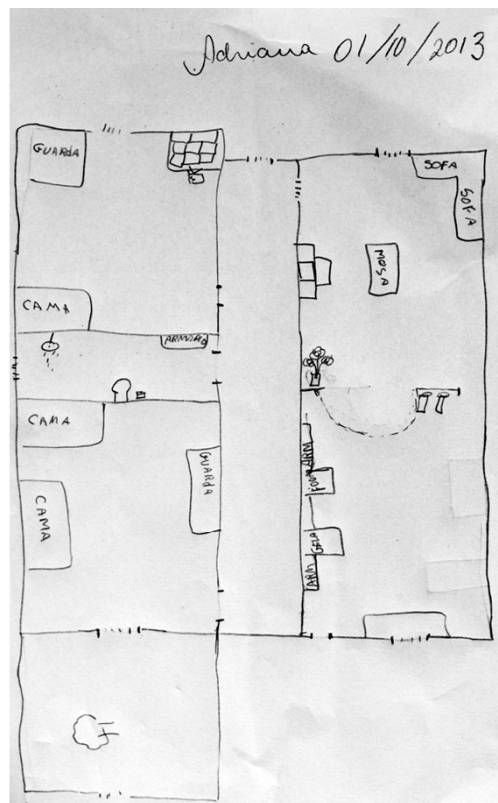 Adriana 01/10/2013
GUARDA
SOFA
SOFA
MESA
CAMA
ARMÁRIO
CAMA
CAMA
GUARDA
ARM
GELA
ARM